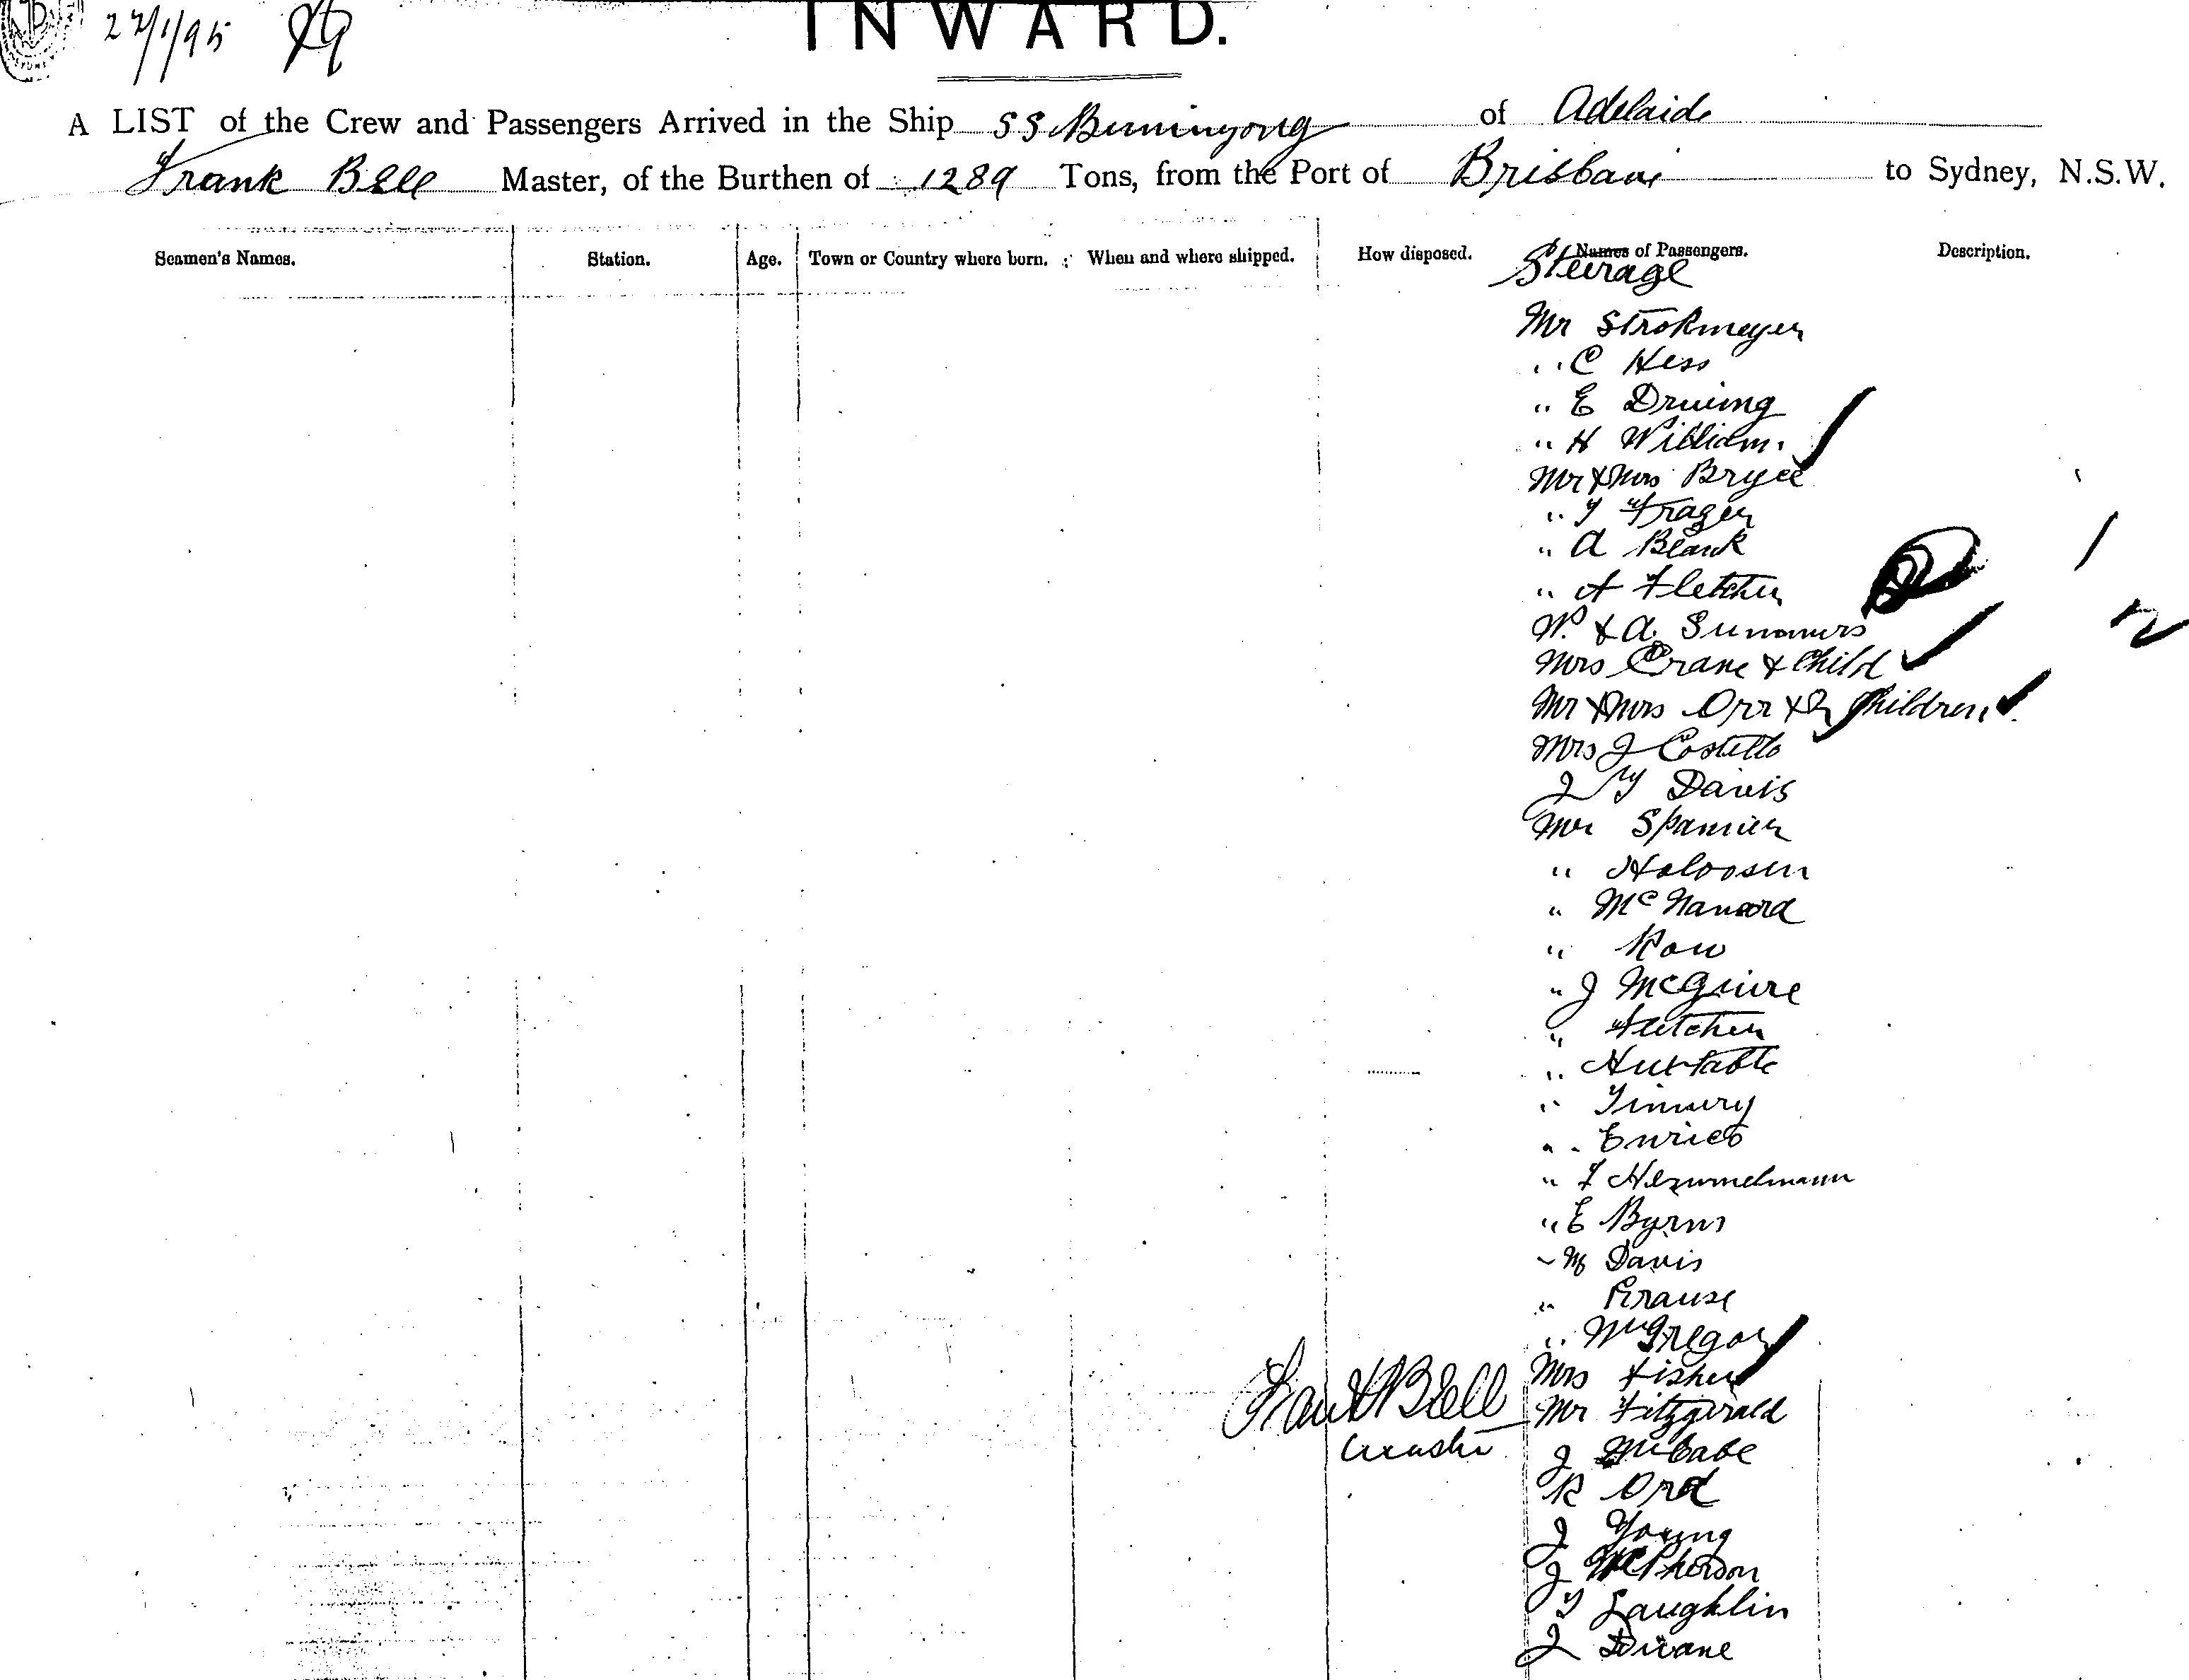 22/1/95
INWARD.
A LIST of the Crew and Passengers Arrived in the Ship SS Buninyong of Adelaide
Frank Bell Master, of the Burthen of 1289 Tons, from the Port of Brisbane to Sydney, N.S.W.
Seamen's Names. Station. Age. Town or Country where born. When and where shipped. How disposed. Names of Passengers. Description.
Steerage
Mr Strokmeyer
" C Hess
" E Druing
" H William
Mr & Mrs Bryce
" T Frazer
" A Blank
" A Fletcher
W. & A. Summers
Mrs Crane & Child
Mr & Mrs Orr & 2 Children
Mrs J Costello
J Davis
Mr Spanier
" Holoosen
" Mc
" Row
" J McGuire
" Fletcher
" Huxtable
" 
" Enrico
" F
" E Byrns
" M Davis
" Krause
" McGregor
Mrs Fisher
Frank Bell Mr Fitzgerald
J McCabe
R Ord
J Young
J McPherson
T Laughlin
J Duane